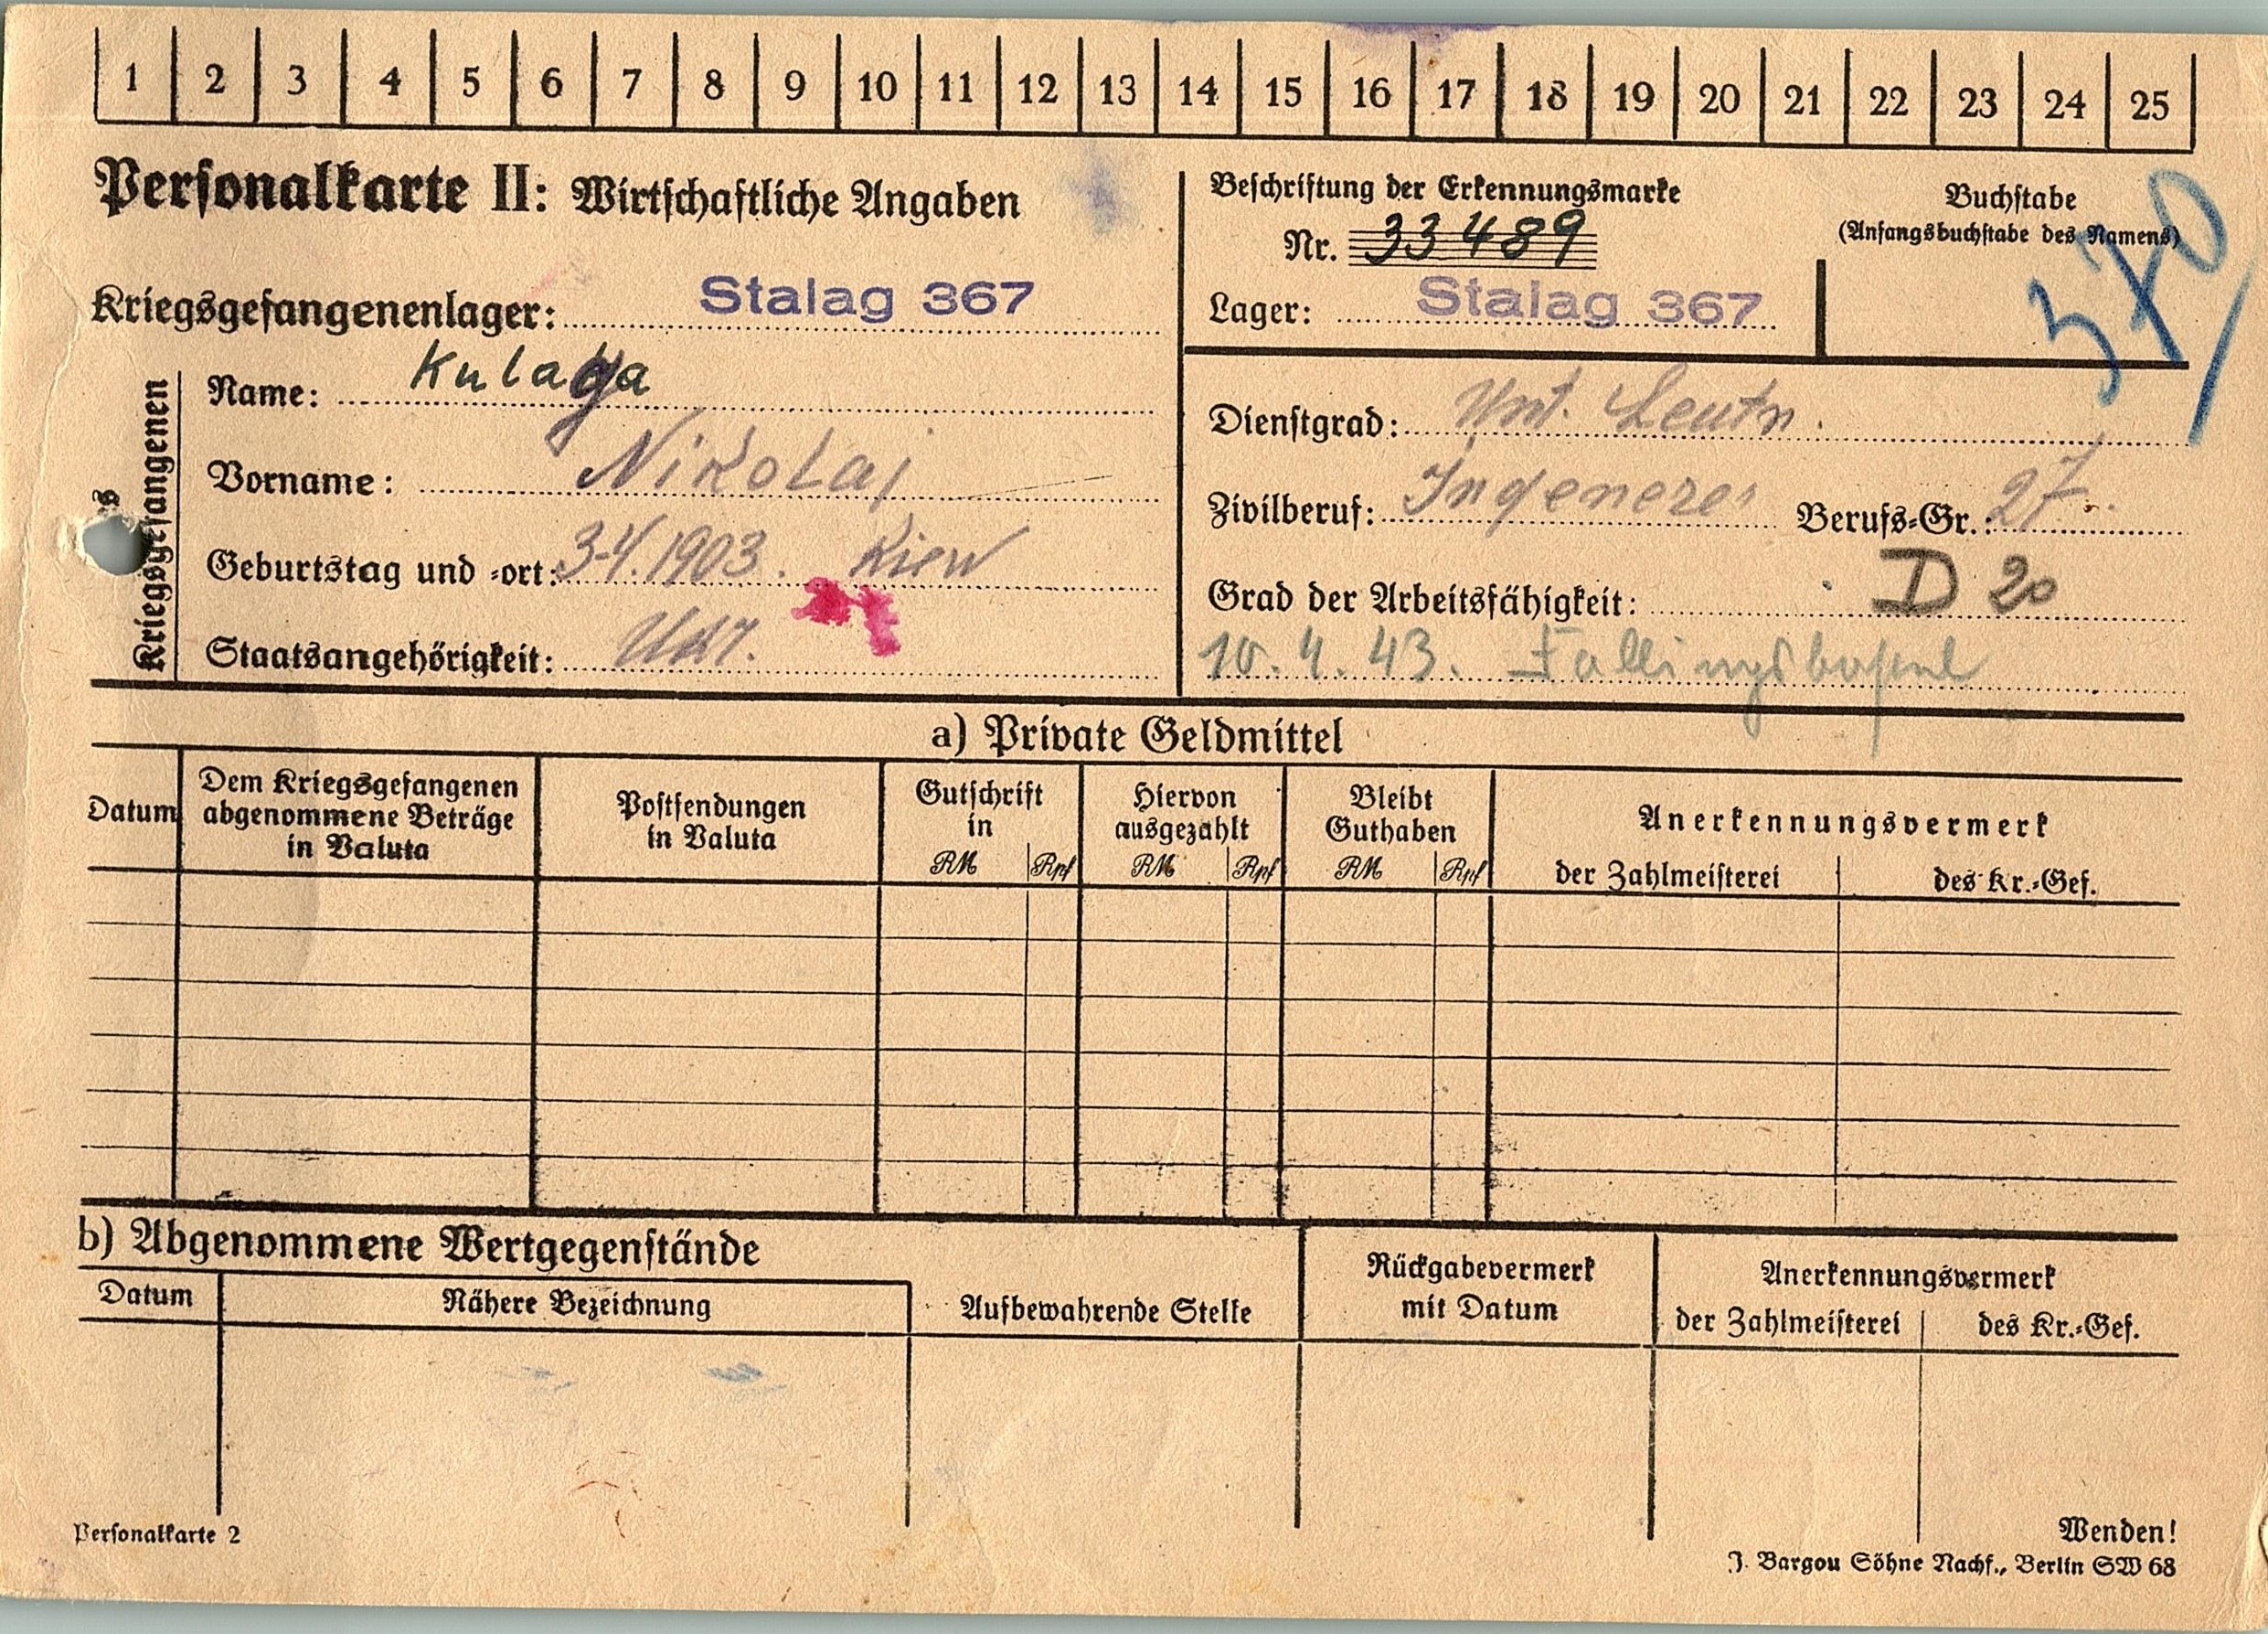 1 2 3 4 5 6 7 8 9 10 11 12 13 14 15 16 17 18 19 20 21 22 23 24 25
Personalkarte II: Wirtschaftliche Angaben
Kriegsgefangenenlager: Stalag 367
Beschriftung der Erkennungsmarke
Nr. 33489
Lager: Stalag 367
Buchstabe
(Anfangsbuchstabe des Namens)
370
Kriegsgefangenen
Name: Kulaga
Vorname: Nikolaj
Geburtstag und -ort: 3.4.1903. Kiew
Staatsangehörigkeit: Ukr.
Dienstgrad: Unt. Leutn.
Zivilberuf: Ingenerer Berufs-Gr.: 27.
Grad der Arbeitsfähigkeit: D 20
10.4.43. Fallingsbostel
a) Private Geldmittel
Datum
Dem Kriegsgefangenen
abgenommene Beträge
in Valuta
Postsendungen
in Valuta
Gutschrift
in
RM Rpf
Hiervon
ausgezahlt
RM Rpf
Bleibt
Guthaben
RM Rpf
Anerkennungsvermerk
der Zahlmeisterei des Kr.-Gef.
b) Abgenommene Wertgegenstände
Datum
Nähere Bezeichnung
Aufbewahrende Stelle
Rückgabevermerk
mit Datum
Anerkennungsvermerk
der Zahlmeisterei des Kr.-Gef.
Personalkarte 2
Wenden!
J. Bargou Söhne Nachf., Berlin SW 68